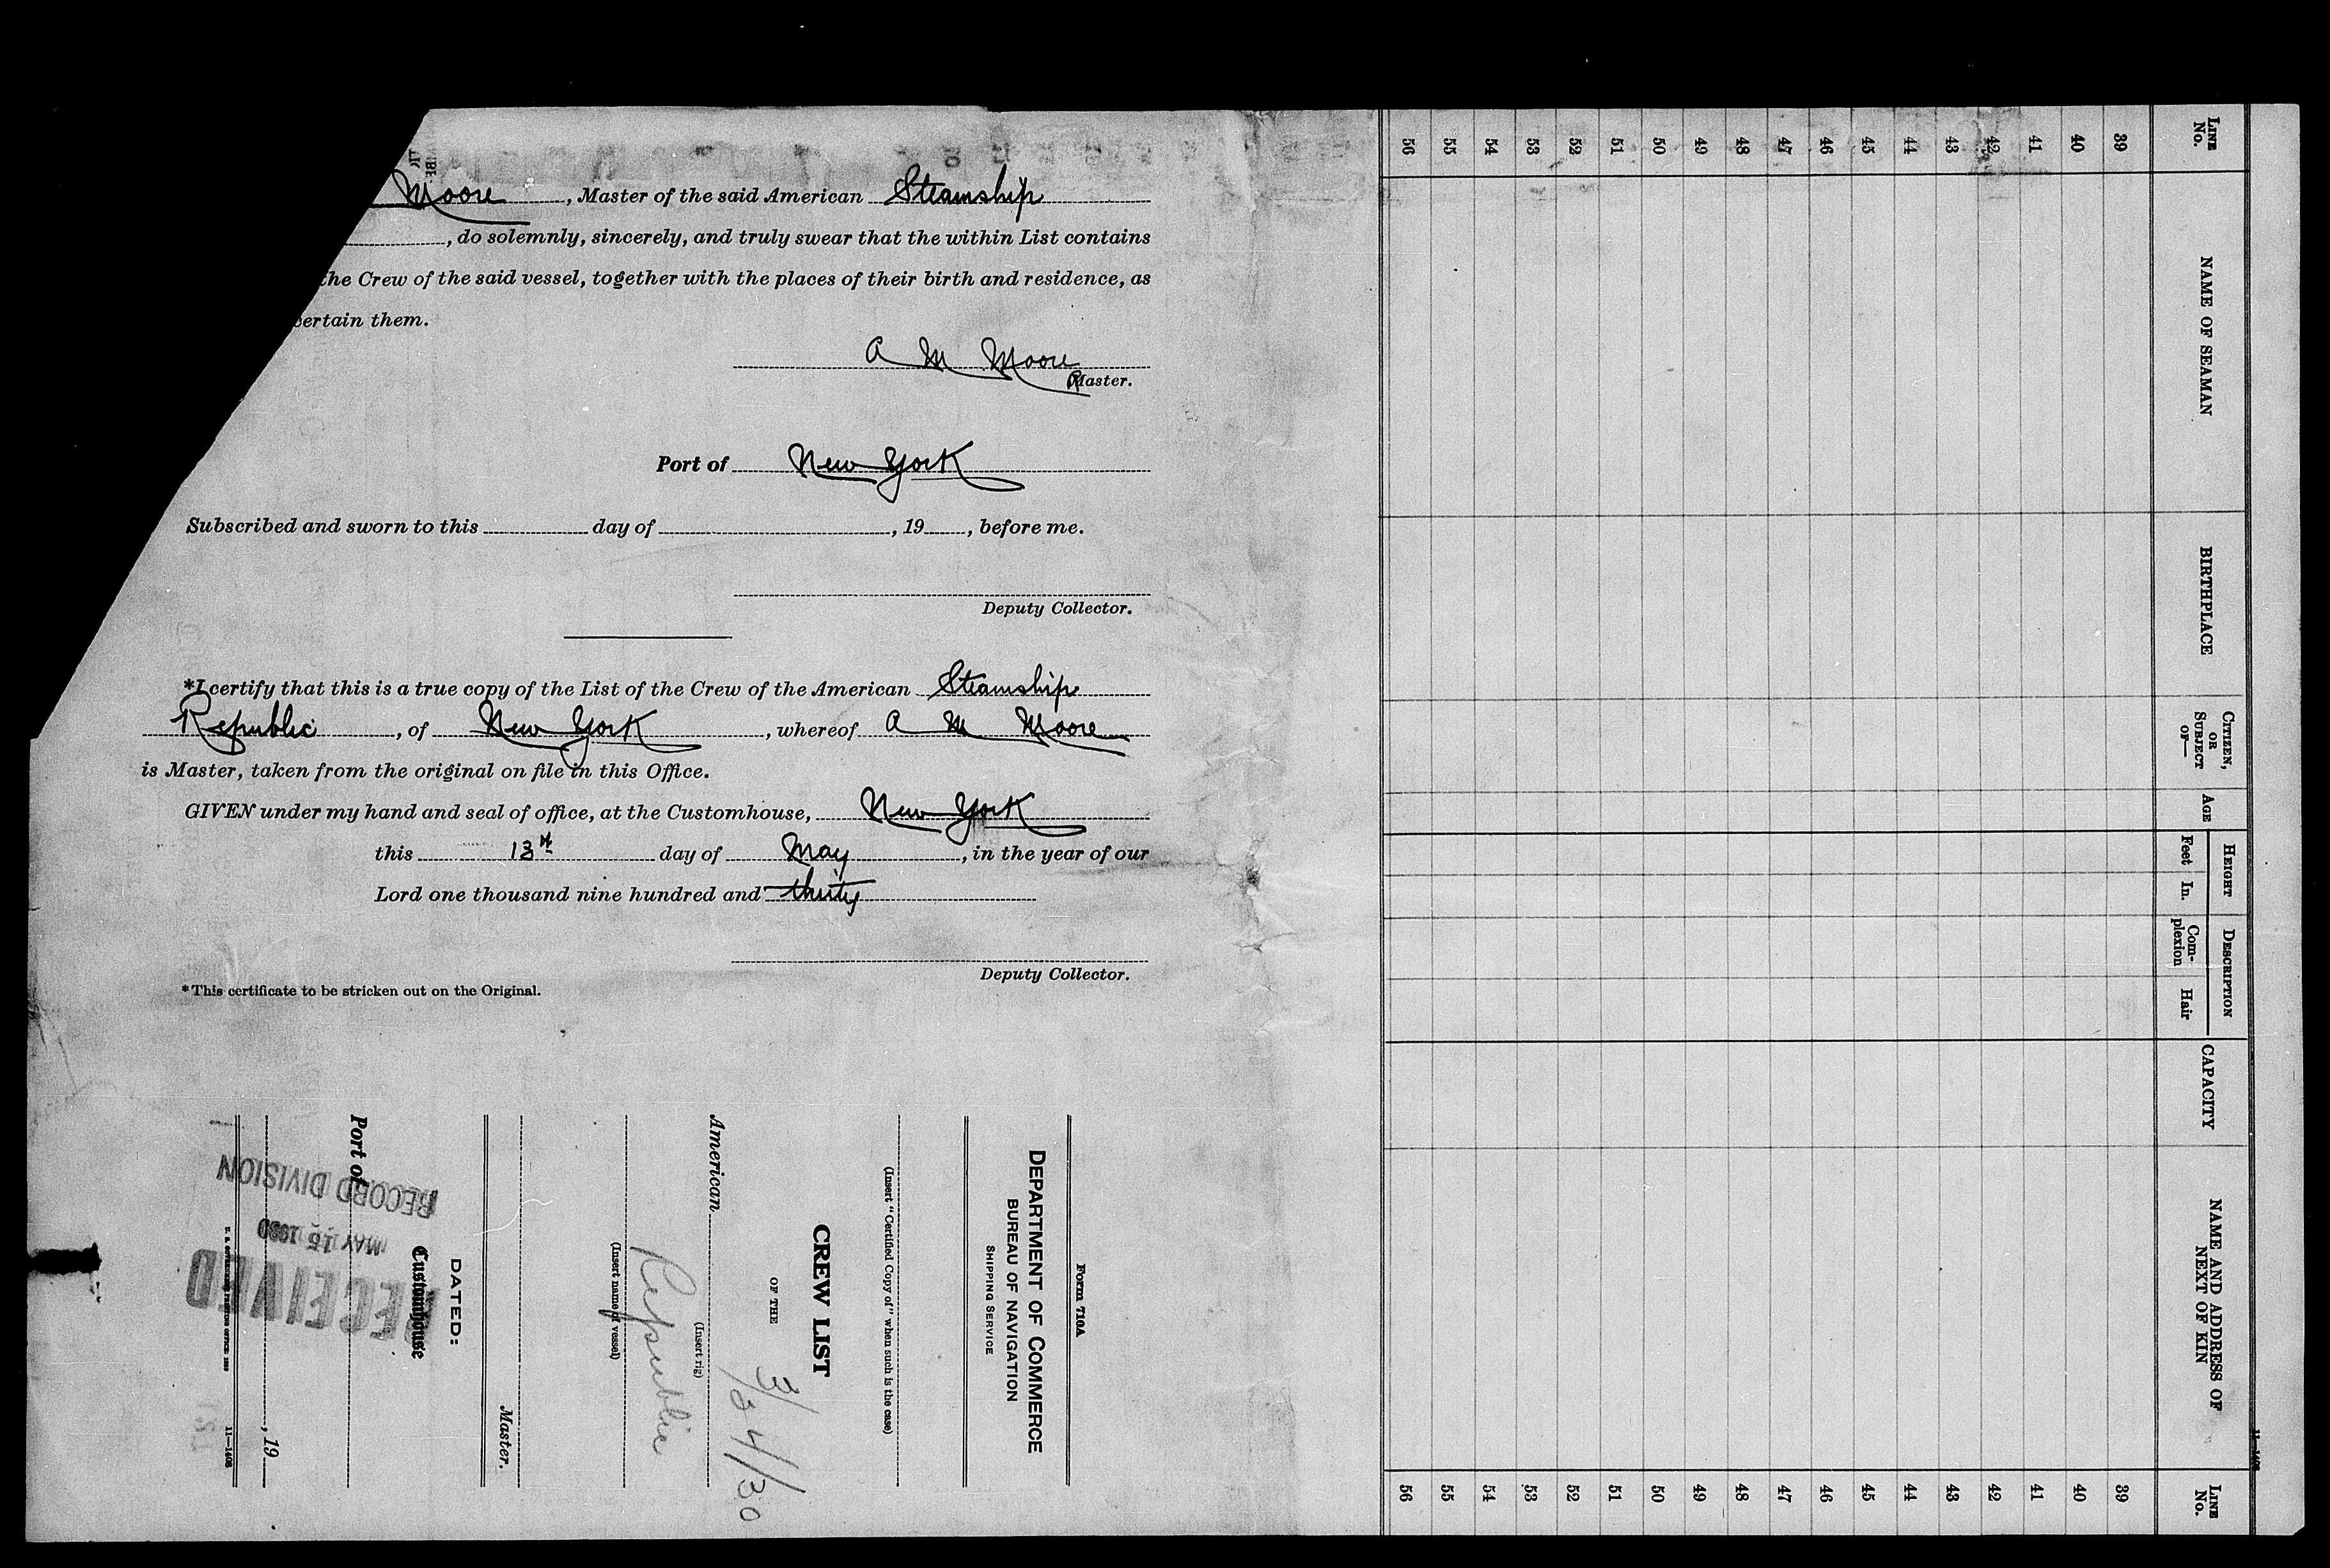 Moore, Master of the said American Steamship
, do solemnly, sincerely, and truly swear that the within List contains
the Crew of the said vessel, together with the places of their birth and residence, as
certain them.
A M Moore
Master.
Port of New York
Subscribed and sworn to this day of , 19 , before me.
Deputy Collector.
*I certify that this is a true copy of the List of the Crew of the American Steamship
Republic, of New York, whereof A M Moore
is Master, taken from the original on file in this Office.
GIVEN under my hand and seal of office, at the Customhouse, New York
this 13th day of May, in the year of our
Lord one thousand nine hundred and thirty
Deputy Collector.
*This certificate to be stricken out on the Original.
Form 710A
DEPARTMENT OF COMMERCE
BUREAU OF NAVIGATION
SHIPPING SERVICE
(Insert "Certified Copy of" when such is the case)
CREW LIST
OF THE
3/24/30
American
(Insert rig)
Republic
(Insert name of vessel)
Master.
DATED:
Customhouse
Port of
, 19
11—1408
RECEIVED
MAY 15 1930
RECORD DIVISION
LINE No.
NAME OF SEAMAN
BIRTHPLACE
CITIZEN, OR SUBJECT OF—
AGE
HEIGHT
Feet
In.
DESCRIPTION
Complexion
Hair
CAPACITY
NAME AND ADDRESS OF NEXT OF KIN
LINE No.
39 39
40 40
41 41
42 42
43 43
44 44
45 45
46 46
47 47
48 48
49 49
50 50
51 51
52 52
53 53
54 54
55 55
56 56